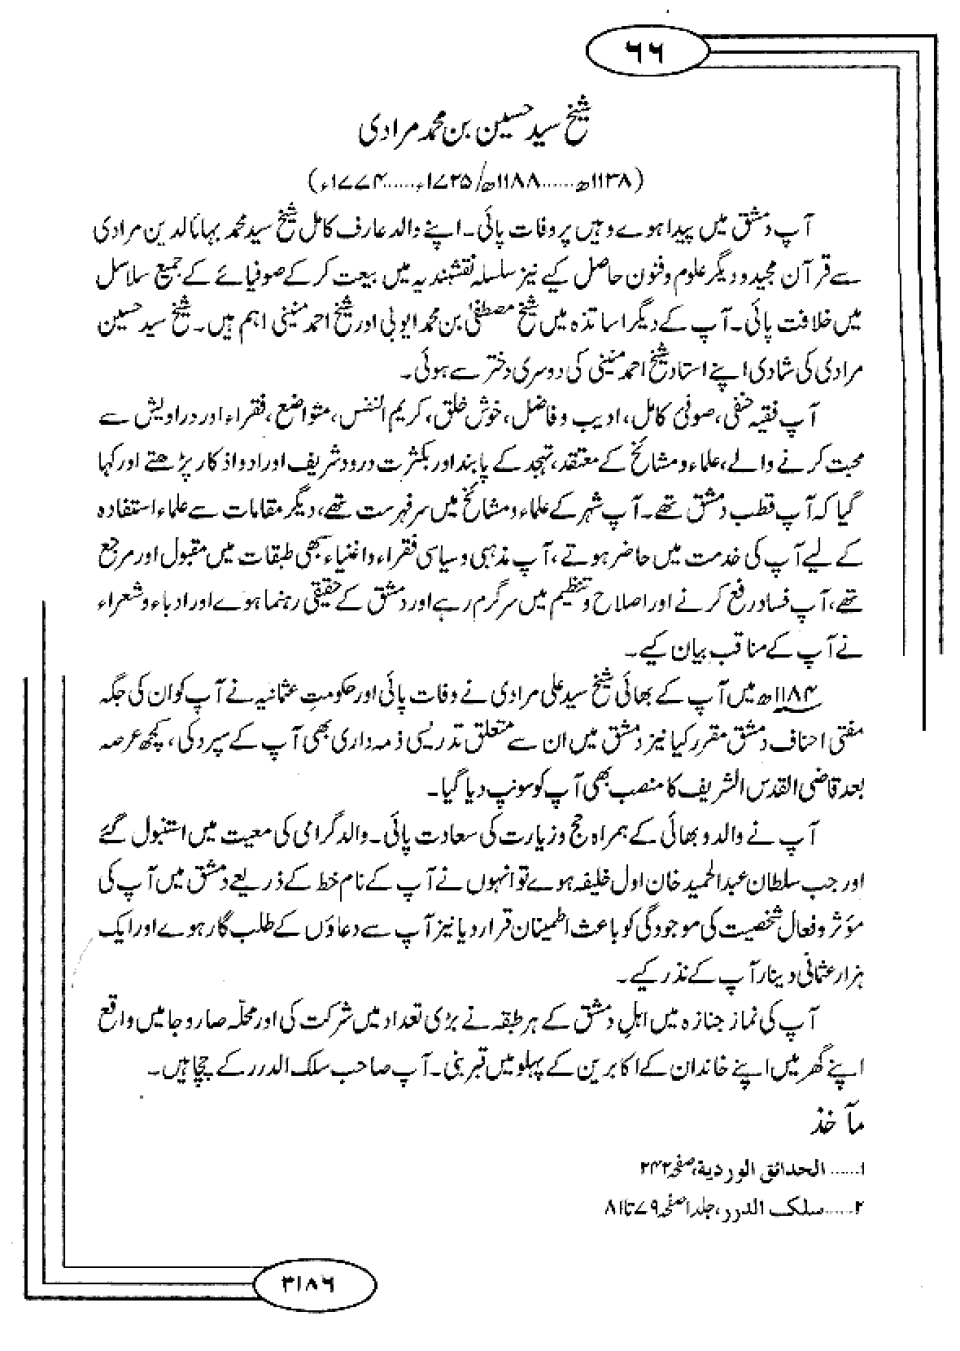 ۶۶
شیخ سید حسین بن محمد مرادی
(۱۱۳۸ھ......۱۱۸۸ھ/۱۷۲۵ء......۱۷۷۴ء)
آپ دمشق میں پیدا ہوے وہیں پر وفات پائی۔ اپنے والد عارف کامل شیخ سید محمد بہائالدین مرادی
سے قرآن مجید و دیگر علوم و فنون حاصل کیے نیز سلسلہ نقشبندیہ میں بیعت کر کے صوفیائے کے جمیع سلاسل
میں خلافت پائی۔ آپ کے دیگر اساتذہ میں شیخ مصطفیٰ بن محمد ایوبی اور شیخ احمد منینی اہم ہیں۔ شیخ سید حسین
مرادی کی شادی اپنے استاد شیخ احمد منینی کی دوسری دختر سے ہوئی۔
آپ فقیہ حنفی، صوفی کامل، ادیب و فاضل، خوش خلق، کریم النفس، متواضع، فقراء اور دراویش سے
محبت کرنے والے، علماء و مشائخ کے معتقد، تہجد کے پابند اور بکثرت درود شریف اور اوراد و اذکار پڑھتے اور کہا
گیا کہ آپ قطب دمشق تھے۔ آپ شہر کے علماء و مشائخ میں سر فہرست تھے، دیگر مقامات سے علماء استفادہ
کے لیے آپ کی خدمت میں حاضر ہوتے، آپ مذہبی و سیاسی فقراء و اغنیاء سبھی طبقات میں مقبول اور مرجع
تھے، آپ فساد رفع کرنے اور اصلاح و تنظیم میں سرگرم رہے اور دمشق کے حقیقی رہنما ہوے اور ادباء و شعراء
نے آپ کے مناقب بیان کیے۔
۱۱۸۴ھ میں آپ کے بھائی شیخ سید علی مرادی نے وفات پائی اور حکومتِ عثمانیہ نے آپ کو ان کی جگہ
مفتی احناف دمشق مقرر کیا نیز دمشق میں ان سے متعلق تدریسی ذمہ داری بھی آپ کے سپرد کی، کچھ عرصہ
بعد قاضی القدس الشریف کا منصب بھی آپ کو سونپ دیا گیا۔
آپ نے والد و بھائی کے ہمراہ حج و زیارت کی سعادت پائی۔ والد گرامی کی معیت میں استنبول گئے
اور جب سلطان عبدالحمید خان اول خلیفہ ہوے تو انہوں نے آپ کے نام خط کے ذریعے دمشق میں آپ کی
مؤثر و فعال شخصیت کی موجودگی کو باعث اطمینان قرار دیا نیز آپ سے دعاؤں کے طلب گار ہوے اور ایک
ہزار عثمانی دینار آپ کے نذر کیے۔
آپ کی نماز جنازہ میں اہلِ دمشق کے ہر طبقہ نے بڑی تعداد میں شرکت کی اور محلّہ صاروجا میں واقع
اپنے گھر میں اپنے خاندان کے اکابرین کے پہلو میں قبر بنی۔ آپ صاحب سلک الدرر کے چچا ہیں۔
مآخذ
۱......الحدائق الوردیة، صفحہ ۲۴۲
۲......سلک الدرر، جلد ۱ صفحہ ۷۹ تا ۸۱
۳۱۸۶